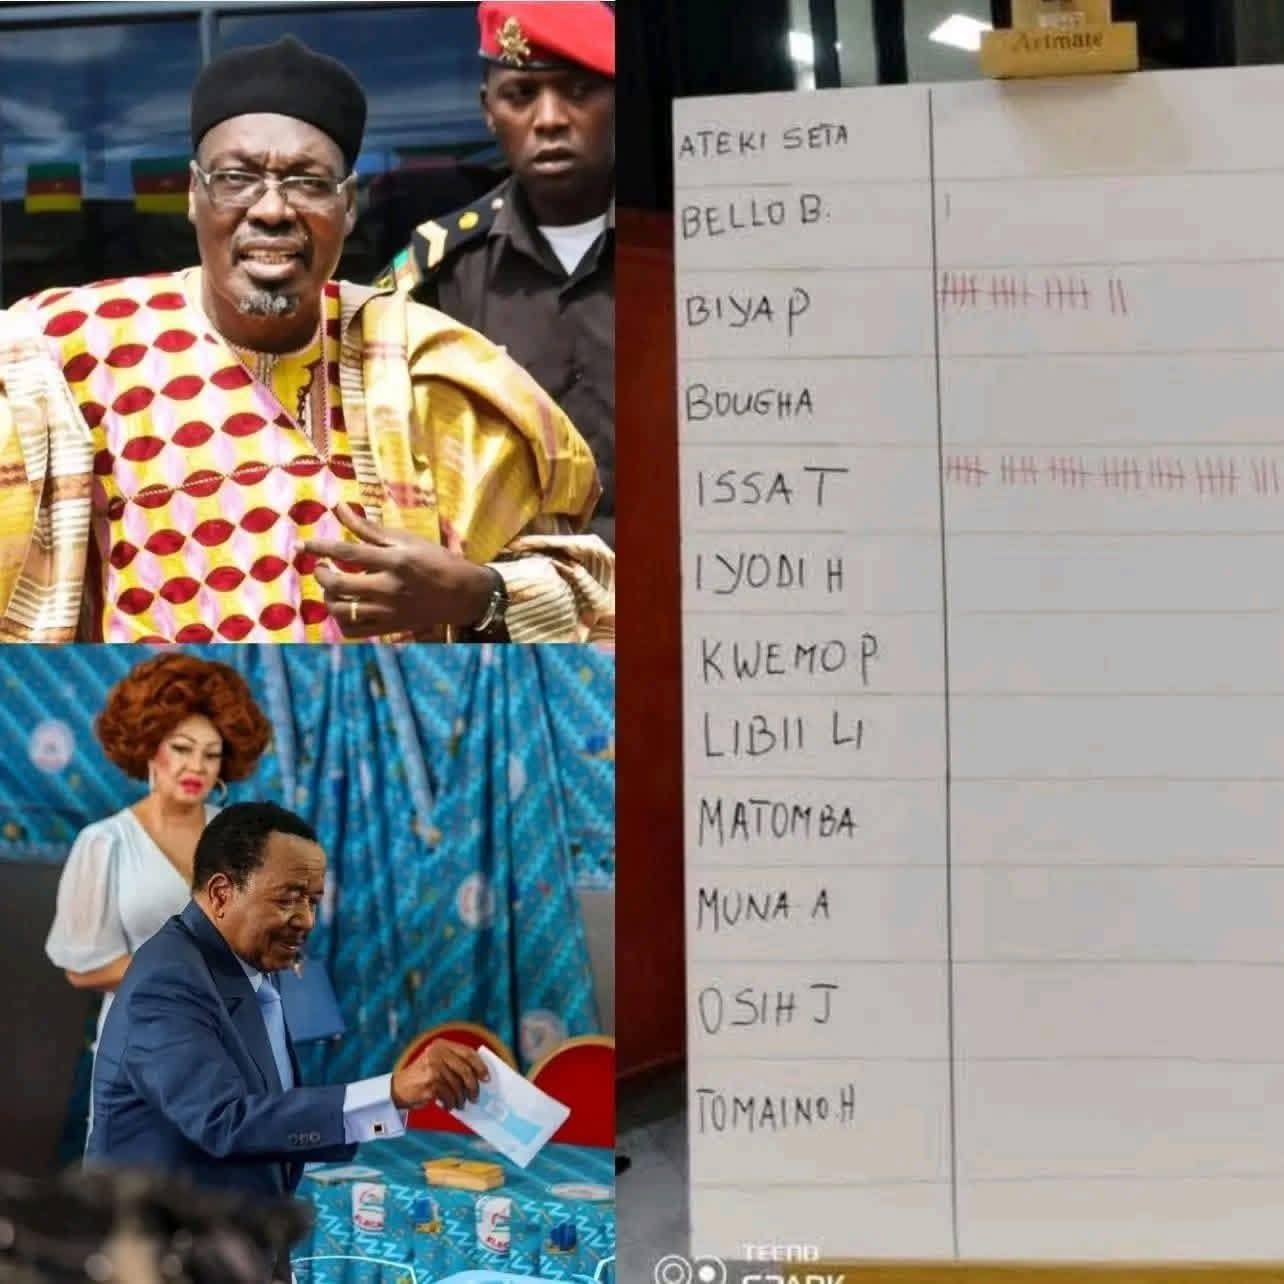 Artmate
ATEKI SETA
BELLO B.
BIYA P
BOUGHA
ISSA T
IYODI H
KWEMO P
LIBII LI
MATOMBA
MUNA A
OSIH J
TOMAINO.H
ELECAM
TECNO
SPARK